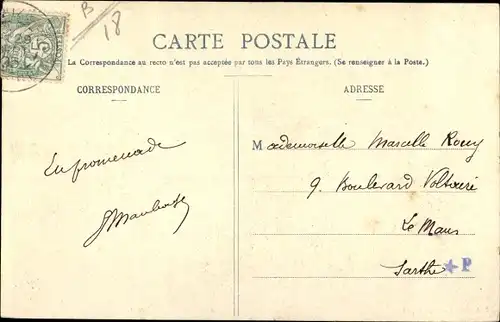 B
18
CARTE POSTALE
La Correspondance au recto n'est pas acceptée par tous les Pays Étrangers. (Se renseigner à la Poste.)
CORRESPONDANCE
En promenade
ADRESSE
Mademoiselle Marcelle
9. Boulevard Voltaire
Le Mans
Sarthe
P